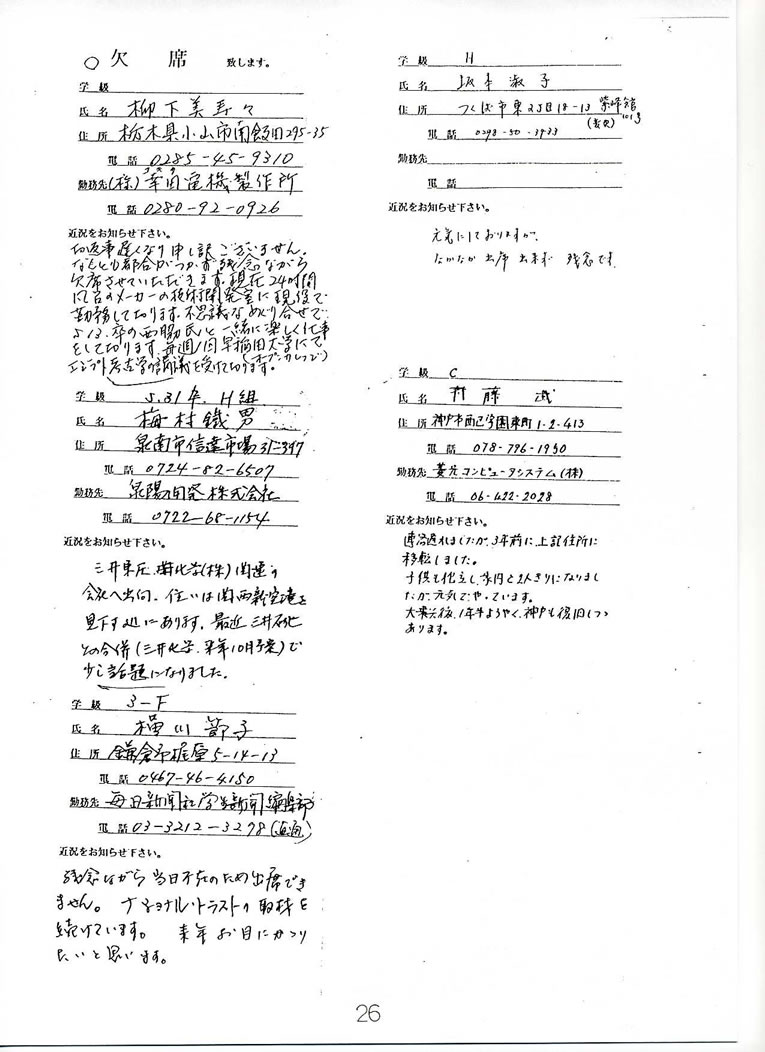 ○ 欠 席 致します。
学 級
氏 名 柳下美寿々
住 所 栃木県小山市南飯田295-35
電 話 0285-45-9310
勤務先 (株) 電機製作所
電 話 0280-92-0926
近況をお知らせ下さい。
お返事遅くなり申し訳ございません。
なんとも都合がつかず残念ながら
欠席させていただきます。現在24時間
風呂のメーカーの技術開発室に現役で
勤務して居ります。不思議なめぐり合せで
S13.卒の西脇氏と一緒に楽しく仕事
をして居ります。毎週1回早稲田大学にて
(オープンカレッジ)
エジプト考古学の講義を受けて居ります。
学 級 S.31卒. H組
氏 名 梅村鐵男
住 所 泉南市信達市場
電 話 0724-82-6507
勤務先 泉陽開発株式会社
電 話 0722-68-1154
近況をお知らせ下さい。
三井東圧 化学(株)関連の
会社へ出向、住いは関西新空港を
見下す処にあります。最近三井石化
との合併(三井化学、来年10月予定)で
少し話題になりました。
学 級 3-F
氏 名 横川節子
住 所 鎌倉市梶原5-14-13
電 話 0467-46-4150
勤務先 毎日新聞社学生新聞編集部
電 話 03-3212-3298(直通)
近況をお知らせ下さい。
残念ながら当日不在のため出席でき
ません。ナショナル・トラストの取材を
続けています。 来年お目にかかり
たいと思います。
学 級 H
氏 名 坂本淑子
住 所 つくば市東2丁目18-13 紫峰館
101号
電 話 0298-50-3933
勤務先
電 話
近況をお知らせ下さい。
元気にしておりますが、
なかなか出席出来ず 残念です。
学 級 C
氏 名 斉藤
住 所 神戸市西区学園東町1-2-413
電 話 078-796-1950
勤務先 菱光コンピュータシステム(株)
電 話 06-422-2028
近況をお知らせ下さい。
連絡遅れましたが、3年前に、上記住所に
移転しました。
子供も独立し、家内と2人きりになりまし
たが、元気でやっています。
大震災後、1年半ようやく、神戸も復旧しつつ
あります。
26